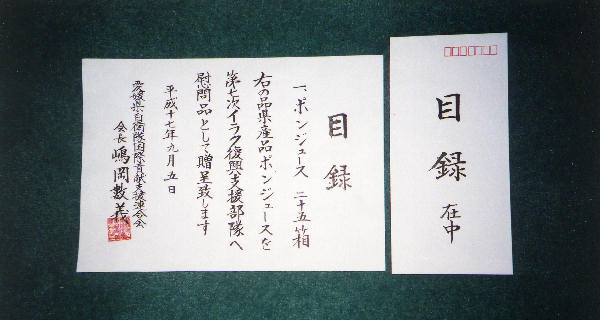 目録
一、ポンジュース 二十五箱
右の品県産品ポンジュースを
第七次イラク復興支援部隊へ
慰問品として贈呈致します
平成十七年九月五日
愛媛県自衛隊国際貢献支援連合会
会長 嶋岡数義
目録 在中